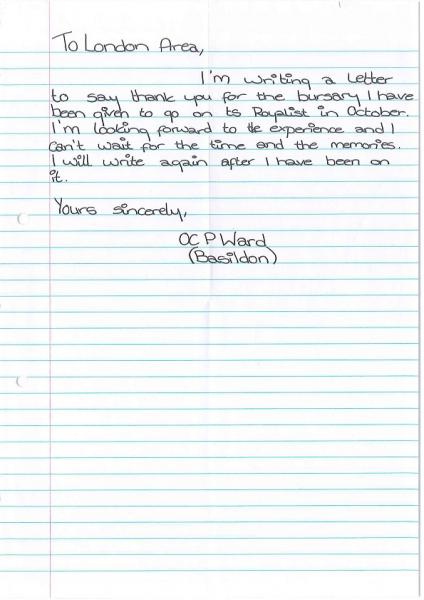 To London Area,
I'm writing a letter
to say thank you for the bursary I have
been given to go on ts Royalist in October.
I'm looking forward to the experience and I
can't wait for the time and the memories.
I will write again after I have been on
it.
Yours sincerely,
OC P Ward
(Basildon)